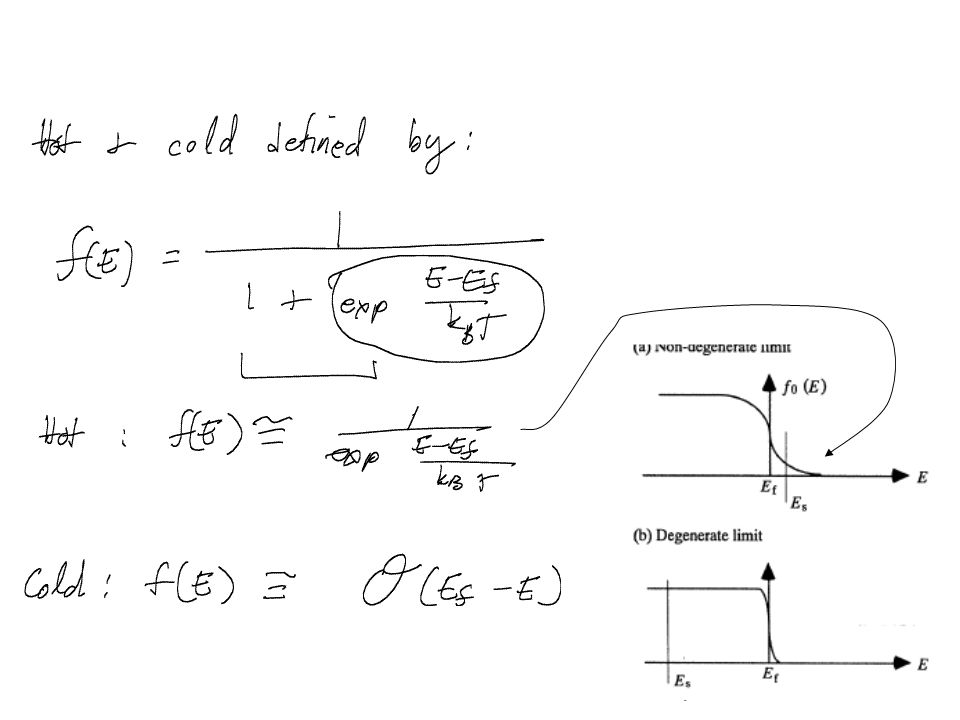 Hot & cold defined by:
f(E) = 1 / (1 + exp (E-Ef)/(kBT))
Hot : f(E) ≅ 1 / (exp (E-Ef)/(kBT))
Cold : f(E) ≅ ϑ(Ef - E)
(a) Non-degenerate limit
f0 (E)
E
Ef
Es
(b) Degenerate limit
E
Ef
Es